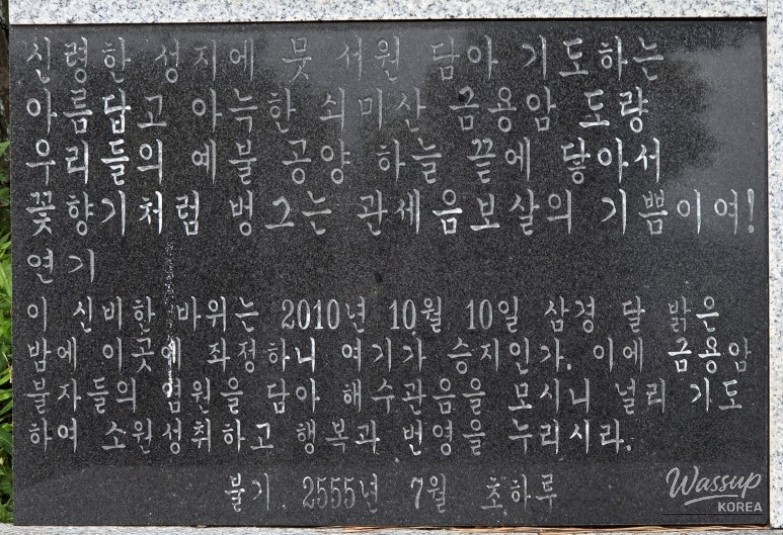 신령한 성지에 뭇 서원 담아 기도하는
아름답고 아늑한 쇠미산 금용암 도량
우리들의 예불 공양 하늘 끝에 닿아서
꽃향기처럼 벙그는 관세음보살의 기쁨이여!
연기
이 신비한 바위는 2010년 10월 10일 삼경 달 밝은
밤에 이곳에 좌정하니 여기가 승지인가. 이에 금용암
불자들의 염원을 담아 해수관음을 모시니 널리 기도
하여 소원성취하고 행복과 번영을 누리시라.
불기 2555년 7월 초하루
Wassup
KOREA